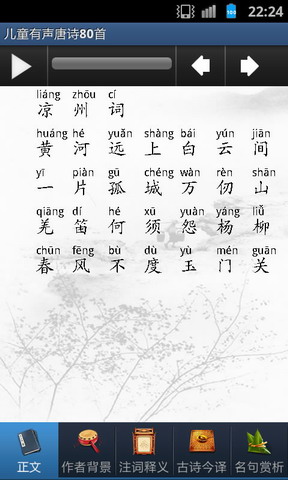 22:24
儿童有声唐诗80首
liáng zhōu cí
凉 州 词
huáng hé yuǎn shàng bái yún jiān
黄 河 远 上 白 云 间
yī piàn gū chéng wàn rèn shān
一 片 孤 城 万 仞 山
qiāng dí hé xū yuàn yáng liǔ
羌 笛 何 须 怨 杨 柳
chūn fēng bù dù yù mén guān
春 风 不 度 玉 门 关
正文 作者背景 注词释义 古诗今译 名句赏析